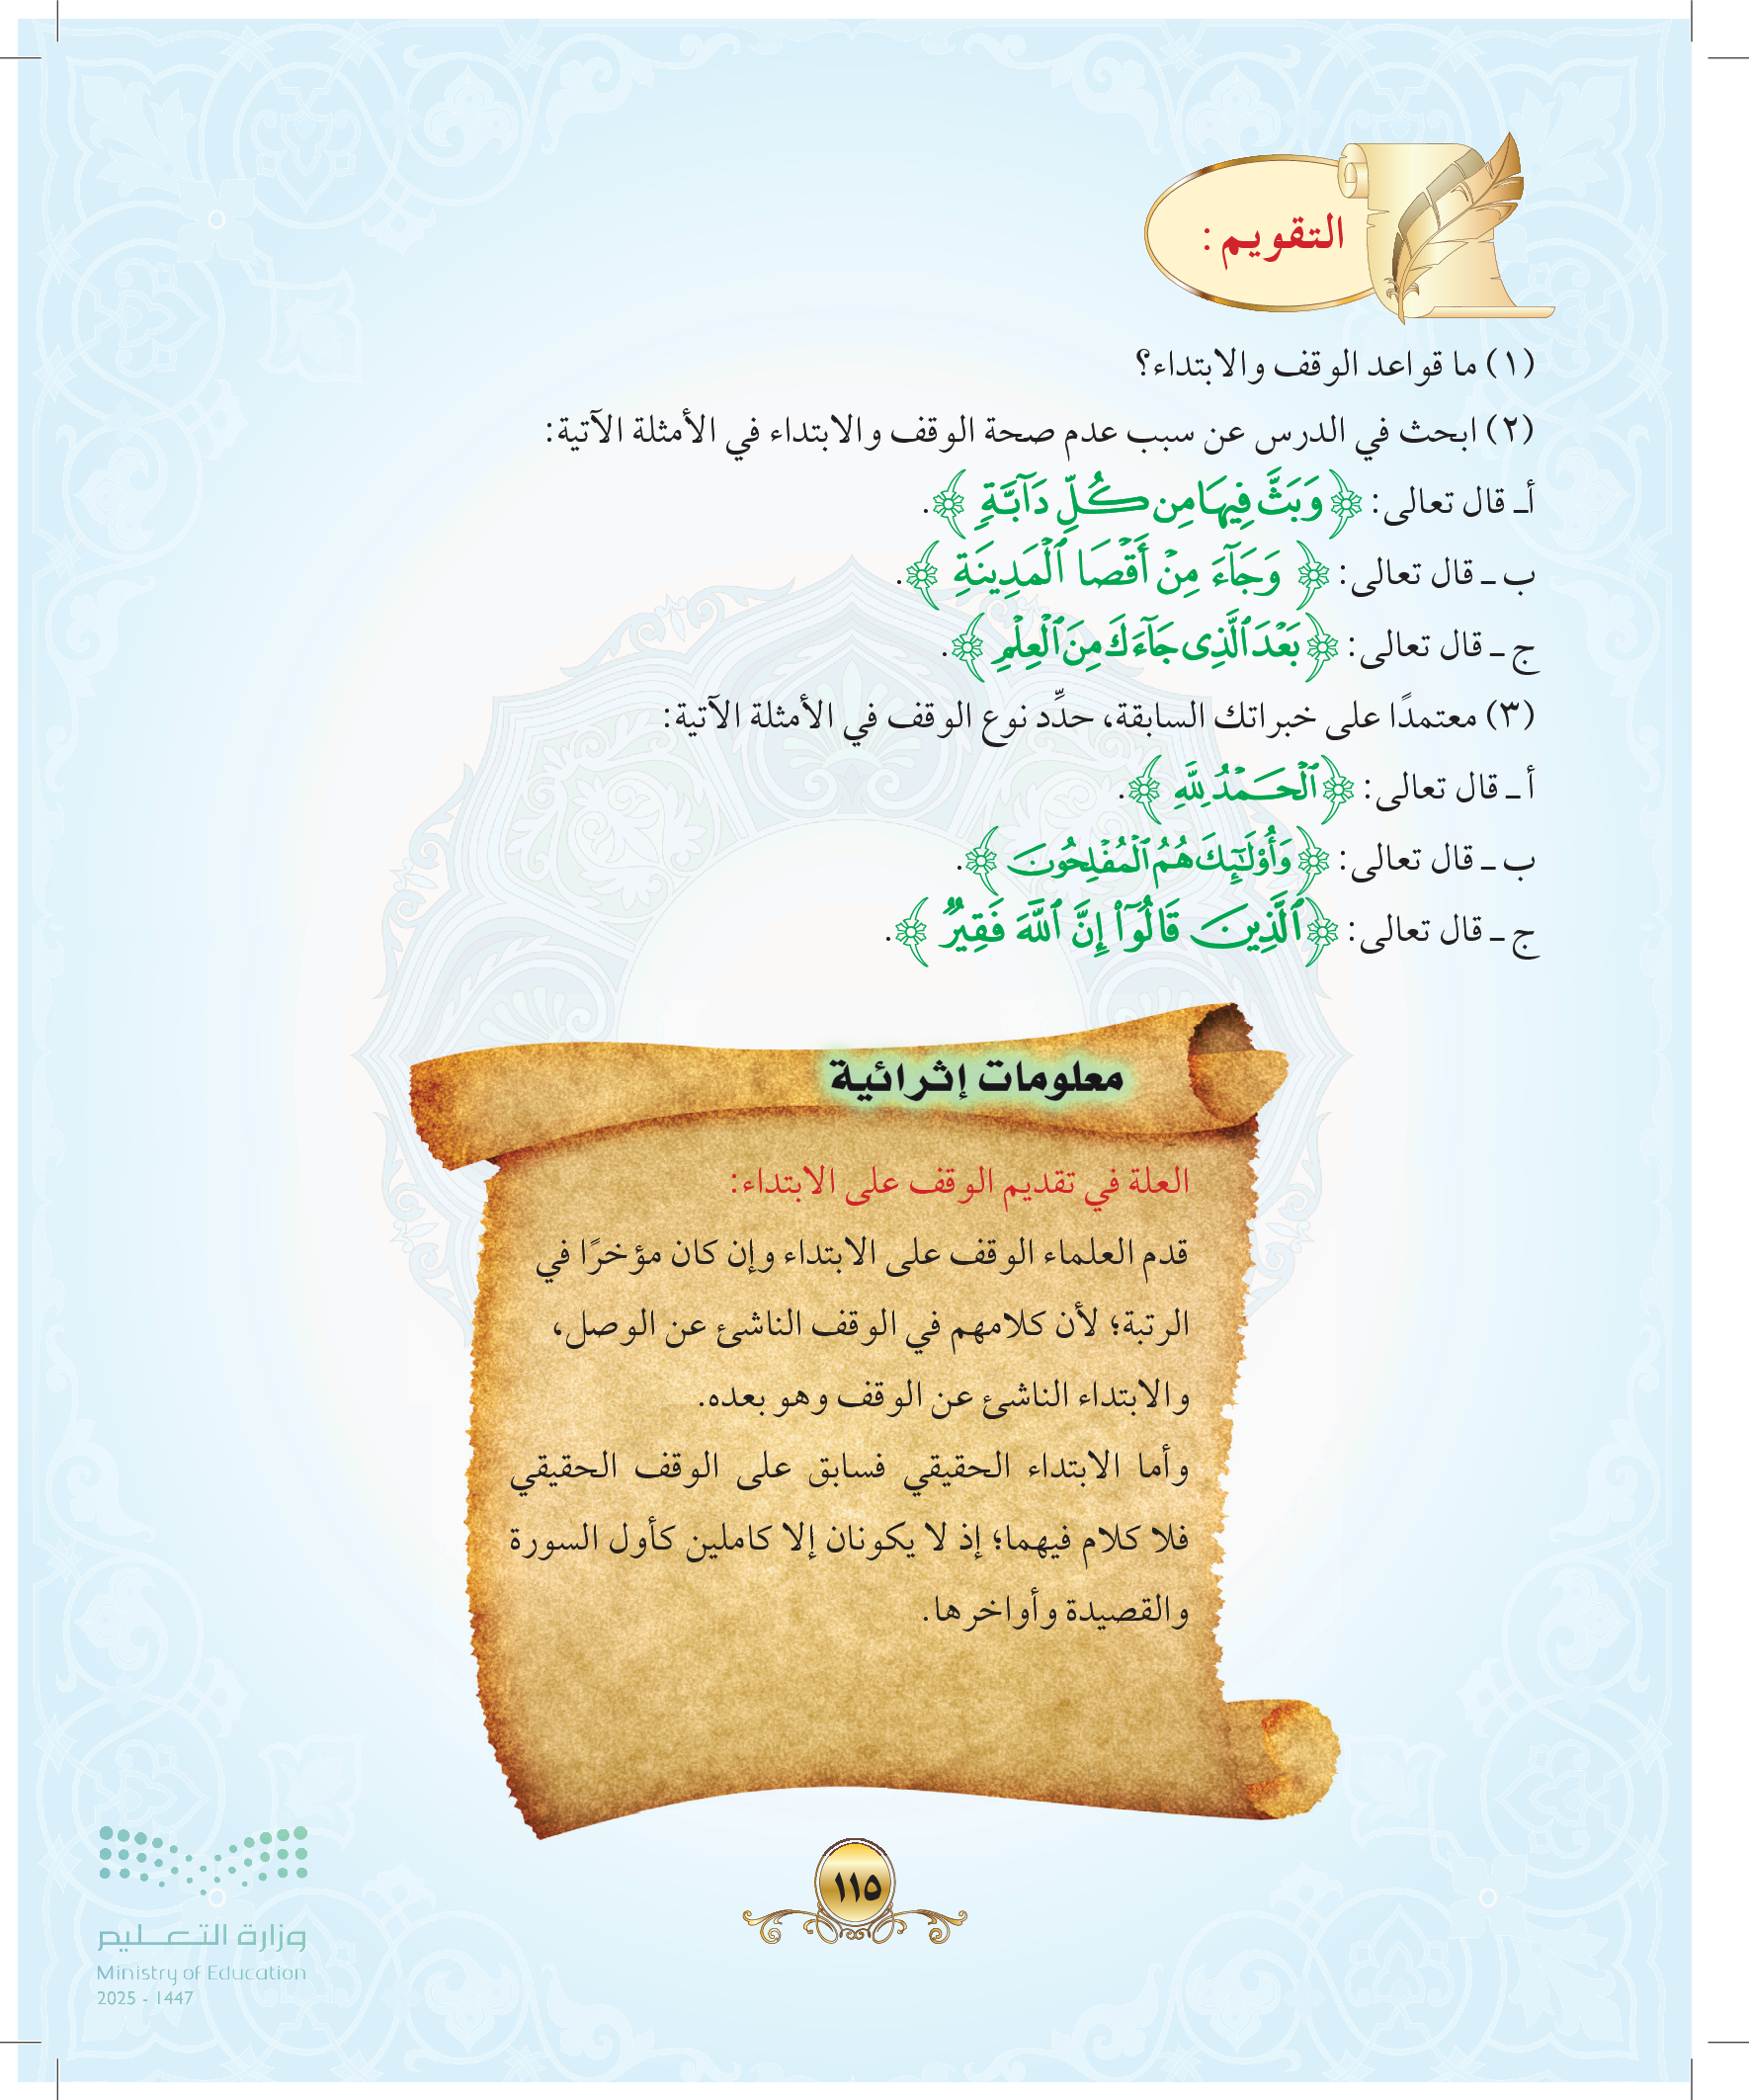 التقويم :
(١) ما قواعد الوقف والابتداء؟
(٢) ابحث في الدرس عن سبب عدم صحة الوقف والابتداء في الأمثلة الآتية:
أـ قال تعالى: ﴿وَبَثَّ فِيهَا مِن كُلِّ دَآبَّةٖ﴾.
ب ـ قال تعالى: ﴿وَجَآءَ مِنۡ أَقۡصَا ٱلۡمَدِينَةِ﴾.
ج ـ قال تعالى: ﴿بَعۡدَ ٱلَّذِى جَآءَكَ مِنَ ٱلۡعِلۡمِ﴾.
(٣) معتمدًا على خبراتك السابقة، حدِّد نوع الوقف في الأمثلة الآتية:
أ ـ قال تعالى: ﴿ٱلۡحَمۡدُ لِلَّهِ﴾.
ب ـ قال تعالى: ﴿وَأُوْلَٰٓئِكَ هُمُ ٱلۡمُفۡلِحُونَ﴾.
ج ـ قال تعالى: ﴿ٱلَّذِينَ قَالُوٓاْ إِنَّ ٱللَّهَ فَقِيرٞ﴾.
معلومات إثرائية
العلة في تقديم الوقف على الابتداء:
قدم العلماء الوقف على الابتداء وإن كان مؤخرًا في
الرتبة؛ لأن كلامهم في الوقف الناشئ عن الوصل،
والابتداء الناشئ عن الوقف وهو بعده.
وأما الابتداء الحقيقي فسابق على الوقف الحقيقي
فلا كلام فيهما؛ إذ لا يكونان إلا كاملين كأول السورة
والقصيدة وأواخرها.
١١٥
وزارة التعليم
Ministry of Education
2025 - 1447